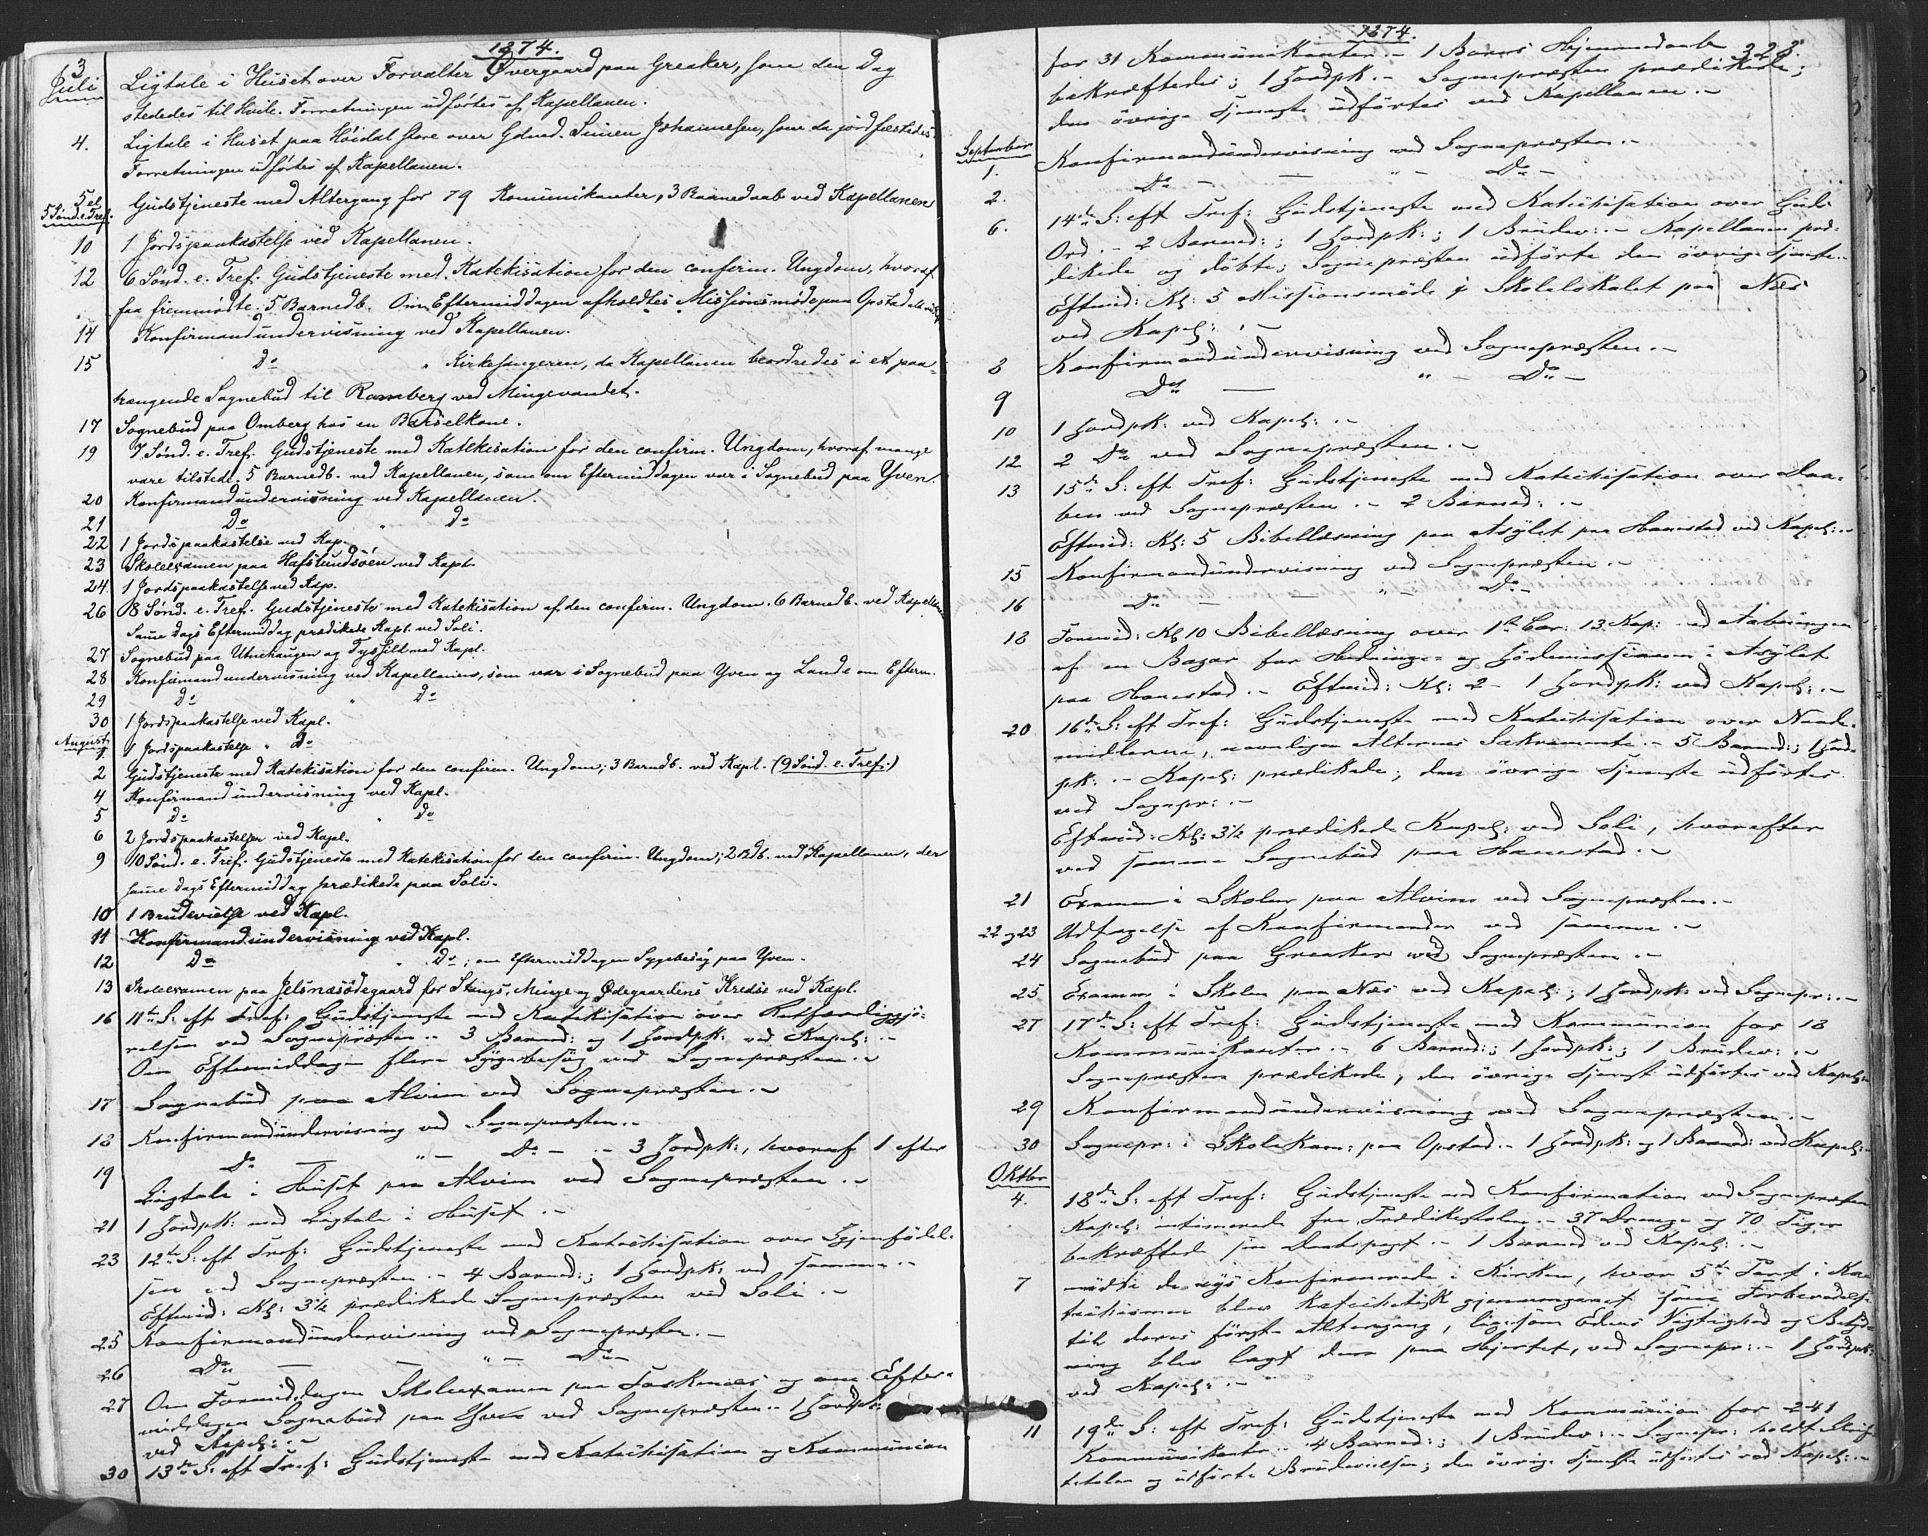 1874.
3 Juli Ligtale i Huset over Forvalter Øvergaard paa Greaker, som den Dag
stededes til Hvile. Forretningen udførtes af Kapellanen.
4. Ligtale i Huset paa Höidal store over Gdmd. Simen Johannesen, som da jordfæstedes.
Forretningen udførtes af Kapellanen.
5 el. 5 Sönd. e. Tref. Gudstjeneste med Altergang for 79 Komunikanter, 3 Baarnedaab ved Kapellanen
10 1 Jordspaakastelse ved Kapellanen.
12 6 Sönd. e. Tref. Gudstjeneste med Katekisation for den confirm. Ungdom, hvoraf
faa fremmødte. 5 Barnedb. Om Eftermiddagen afholdtes Missionsmöde paa Opstad
14 Konfirmandundervisning ved Kapellanen.
15 Do " Kirkesangeren, da Kapellanen beordredes i et paa-
trængende Sognebud til Ramberg ved Mingevandet.
17 Sognebud paa Omberg hos en Barselkone.
19 7 Sönd. e. Tref. Gudstjeneste med Katekisation for den confirm. Ungdom, hvoraf mange
vare tilstede. 5 Barnedb. ved Kapellanen, som om Eftermiddagen var i Sognebud paa Yven.
20 Konfirmandundervisning ved Kapellanen.
21 Do " Do
22 1 Jordspaakastelse ved Kap.
23 Skoleexamen paa Hafslundsöen ved Kapl.
24 1 Jordspaakastelse ved Kap.
26 8 Sönd. e. Tref. Gudstjeneste med Katekisation af den confirm. Ungdom. 6 Barnedb. ved Kapellanen
Same Dags Eftermiddag prædikede Kapl. ved Soli.
27 Sognebud paa Utnehaugen og Tyssild ved Kapl.
28 Konfirmandundervisning ved Kapellanen, som var i Sognebud paa Yven og Lande om Efterm.
29 Do " Do
30 1 Jordspaakastelse ved Kapl.
August
1 1 Jordspaakastelse " Do
2 Gudstjeneste med Katekisation for den confirm. Ungdom; 3 Barndb. ved Kapl. (9 Sönd. e. Tref.)
4 Konfirmandundervisning ved Kapl.
5 Do " Do
6 2 Jordspaakastelser ved Kapl.
9 10 Sönd. e. Tref. Gudstjeneste med Katekisation for den confirm. Ungdom; 2 Bdb. ved Kapellanen, der
same Dags Eftermiddag prædikede paa Soli.
10 1 Brudevielse ved Kapl.
11 Konfirmandundervisning ved Kapl.
12 Do " Do; om Eftermiddagen Sygebesög paa Yven.
13 Skoleexamen paa Jelsnæsödegaard for Stangs, Minge og Ødegaardens Kredse ved Kapl.
16 11te S: eft Tref: Gudstjeneste med Katekisation over Retfærdiggjö-
relsen ved Sognepræsten.- 3 Barned: og 1 Jordpk: ved Kapel:.-
Om Eftermiddagen flere Sygebesög ved Sognepræsten.-
17 Sognebud paa Alvim ved Sognepræsten.-
18 Konfirmandundervisning ved Sognepræsten.-
19 Do — " — Do — .- 3 Jordpk:, hvoraf 1 efter
Ligtale i Huset paa Alvim ved Sognepræsten.-
21 1 Jordpk: med Ligtale i Huset.-
23 12te S: eft Tref: Gudstjeneste med Katechisation over Gjenfödel-
sen ved Sognepræsten.- 4 Barned:; 1 Jordpk: ved samme.-
Eftmid: Kl: 3½ prædikede Sognepræsten ved Soli.-
25 Konfirmandundervisning ved Sognepræsten.-
26 Do — — " — Do —
27 Om Formiddagen Skoleexamen paa Torsknæs og om Efter-
middagen Sognebud paa Yven ved Sognepræsten.- 1 Jordpk:
ved Kapel:.-
30 13de S: eft Tref: Gudstjeneste med Katechisation og Kommunion
1874. 323.
for 31 Kommunikanter.- 1 Barns Hjemmedaab
bekræftedes; 1 Jordpk.- Sognepræsten prædikede;
den övrige Tjeneste udförtes ved Kapellanen.-
September
1. Konfirmandundervisning ved Sognepræsten.-
2. Do — — " — Do —
6. 14de S: eft Tref: Gudstjeneste med Katechisation over Guds
Ord.- 2 Barned:; 1 Jordpk:; 1 Brudev:.- Kapellanen præ-
dikede og döbte; Sognepræsten udförte den övrige Tjeneste.-
Eftmid: Kl: 5 Missionsmöde i Skolelokalet paa Næs
ved Kapel:.-
8 Konfirmandundervisning ved Sognepræsten.-
9 Do — " — Do —
10 1 Jordpk: ved Kapel:.-
12 2 Do ved Sognepræsten.-
13 15de S: eft Tref: Gudstjeneste med Katechisation over Daa-
ben ved Sognepræsten.- 2 Barned:.-
Eftmid: Kl: 5 Bibellæsning paa Asylet paa Hannestad ved Kapel:.-
15 Konfirmandundervisning ved Sognepræsten.-
16 Do — — " — Do —
18 Formid: Kl 10 Bibellæsning over 1ste Cor: 13 Kap: ved Aabningen
af en Bazar for Hedninge- og Jödemissionen i Asylet
paa Hannestad.- Eftmid: Kl: 2 - 1 Jordpk: ved Kapel:.-
20 16de S: eft Tref: Gudstjeneste med Katechisation over Naade-
midlerne, navnligen Alterens Sakramente.- 5 Barned:; 1 Jord-
pk:.- Kapel: prædikede; den övrige Tjeneste udförtes
ved Sognepr:.-
Eftmid: Kl: 3½ prædikede Kapel: ved Soli, hvorefter
ved samme Sognebud paa Hannestad.-
21 Examen i Skolen paa Alvim ved Sognepræsten.-
22 og 23 Udtagelse af Konfirmander ved samme.-
24 Sognebud paa Greaker ved Sognepræsten.-
25 Examen i Skolen paa Næs ved Kapel:; 1 Jordpk: ved Sognepr:.-
27 17de S: eft Tref: Gudstjeneste med Kommunion for 18
Kommunikanter.- 6 Barned:; 1 Jordpk:; 1 Brudev:.-
Sognepræsten prædikede, den övrige Tjenest udförtes ved Kapel:-
29 Konfirmandundervisning ved Sognepræsten.-
30 Sognepr: i Skolekom: paa Opstad.- 1 Jordpk: og 1 Barned: ved Kapel:.-
Oktbr
4. 18de S: eft Tref: Gudstjeneste med Konfirmation ved Sognepræsten
Kapel: intimerede fra Prædikestolen.- 37 Drenge og 70 Piger
bekræftede sin Daabspagt.- 1 Barned ved Kapel:.-
7 mödte de nys Konfirmerede i Kirken, hvor 5te Part i Ka-
techismen blev katechetisk gjennemgaaet som Forberedelse
til deres förste Altergang, ligesom Edens Vigtighed og Betyd-
ning blev lagt dem paa Hjertet, ved Sognepr:.- 1 Jordpk:
ved Kapel:.-
11 19de S: eft Tref: Gudstjeneste med Kommunion for 241
Kommunikanter.- 4 Barned:; 1 Brudev:.- Sognepr: holdt Skrif-
tetalen og udförte Brudevielsen; den övrige Tjeneste udförtes ved Kapel:.-